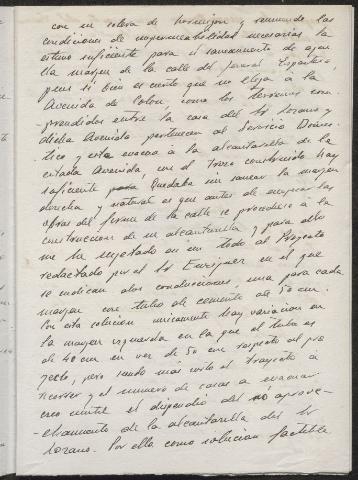 con su solera de hormigon y reuniendo las
condiciones de impermeabilidad necesarias la
estimo suficiente para el saneamiento de aque
lla margen de la calle del General Espartero,
pues si bien es cierto que no llega á la
Avenida de Colon, como los terrenos com-
prendidos entre la casa del Sr Lozano y
dicha Avenida pertenecen al Servicio Domés-
tico y esta evacua á la alcantarilla de la
citada Avenida, con el trozo construido hay
suficiente. Quedaba sin sanear la margen
derecha y natural es que antes de empezar las
obras del firme de la calle se procediese á la
construccion de su alcantarilla y para ello
me he sujetado en un todo al Proyecto
redactado por el Sr Enriquez en el que
se indican dos conducciones, una para cada
margen con tubo de cemento de 50 cm.
Por esta solucion unicamente hay variacion en
la margen izquierda en la que el tubo es
de 40 cm en vez de 50 cm respecto al pro
yecto, pero siendo mas corto el trayecto á
recorrer y el numero de casas á evacuar
creo inutil el dispendio del nó aprove-
-chamiento de la alcantarilla del Sr
Lozano. Por ello como solucion factible